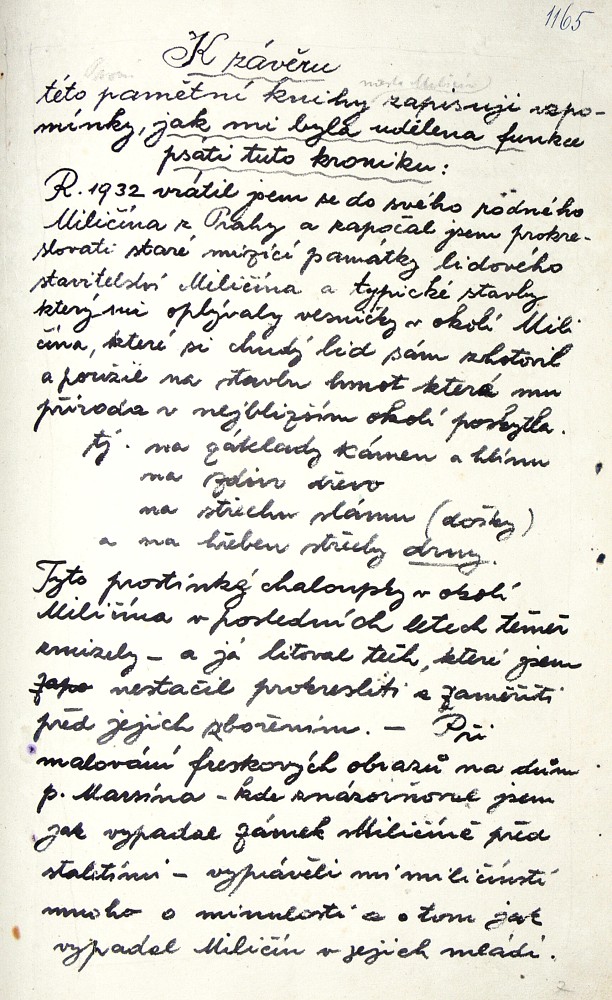 1165
K závěru
první
města Miličín)
této pamětní knihy zapisuji vzpo-
mínky, jak mi byla udělena funkce
psáti tuto kroniku:
R. 1932 vrátil jsem se do svého rodného
Miličína z Prahy a započal jsem prokre-
slovati staré mizící památky lidového
stavitelství Miličína a typické stavby
kterými oplývaly vesničky v okolí Mili
čína, které si chudý lid sám zhotovil
a použil na stavbu hmot která mu
příroda v nejbližším okolí poskytla.
tj. na základy kámen a hlínu
na zdivo dřevo
na střechu slámu (došky)
a na hřeben střechy drny.
Tyto prostinké chaloupky v okolí
Miličína v posledních letech téměř
zmizely – a já litoval těch, které jsem
zapo nestačil prokresliti a zaměřiti
před jejich zbořením. – Při
malování freskových obrazů na domu
p. Marsína – kde znázorňoval jsem
jak vypadal zámek Miličíně před
staletími – vyprávěli mi miličínstí
mnoho o minulosti a o tom jak
vypadal Miličín v jejich mládí.
2